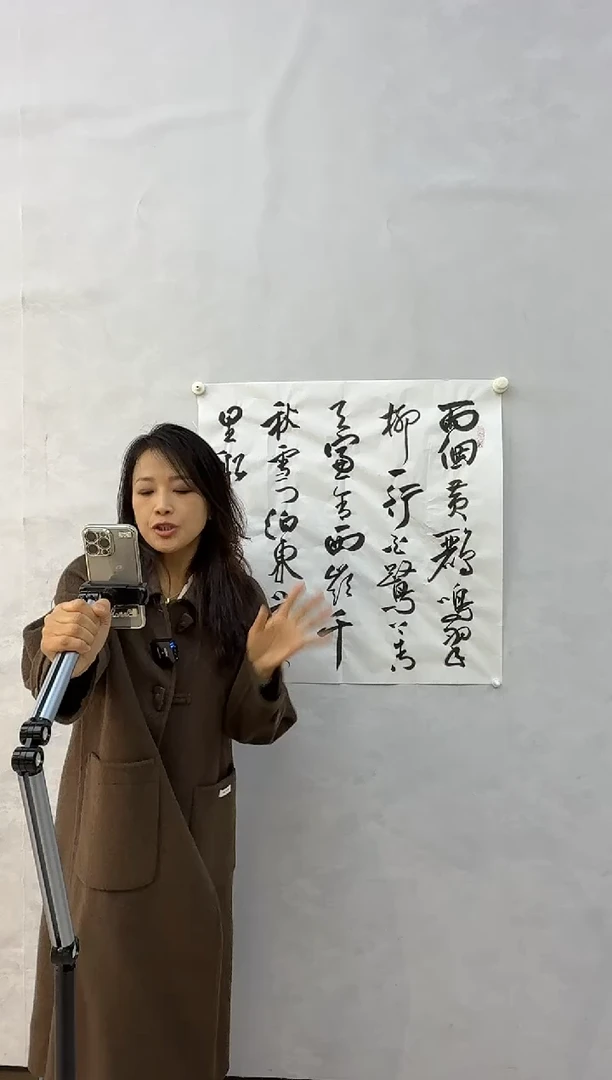 兩個黄鸝鳴翠
柳一行白鷺上青
天窗含西嶺千
秋雪门泊東
里船